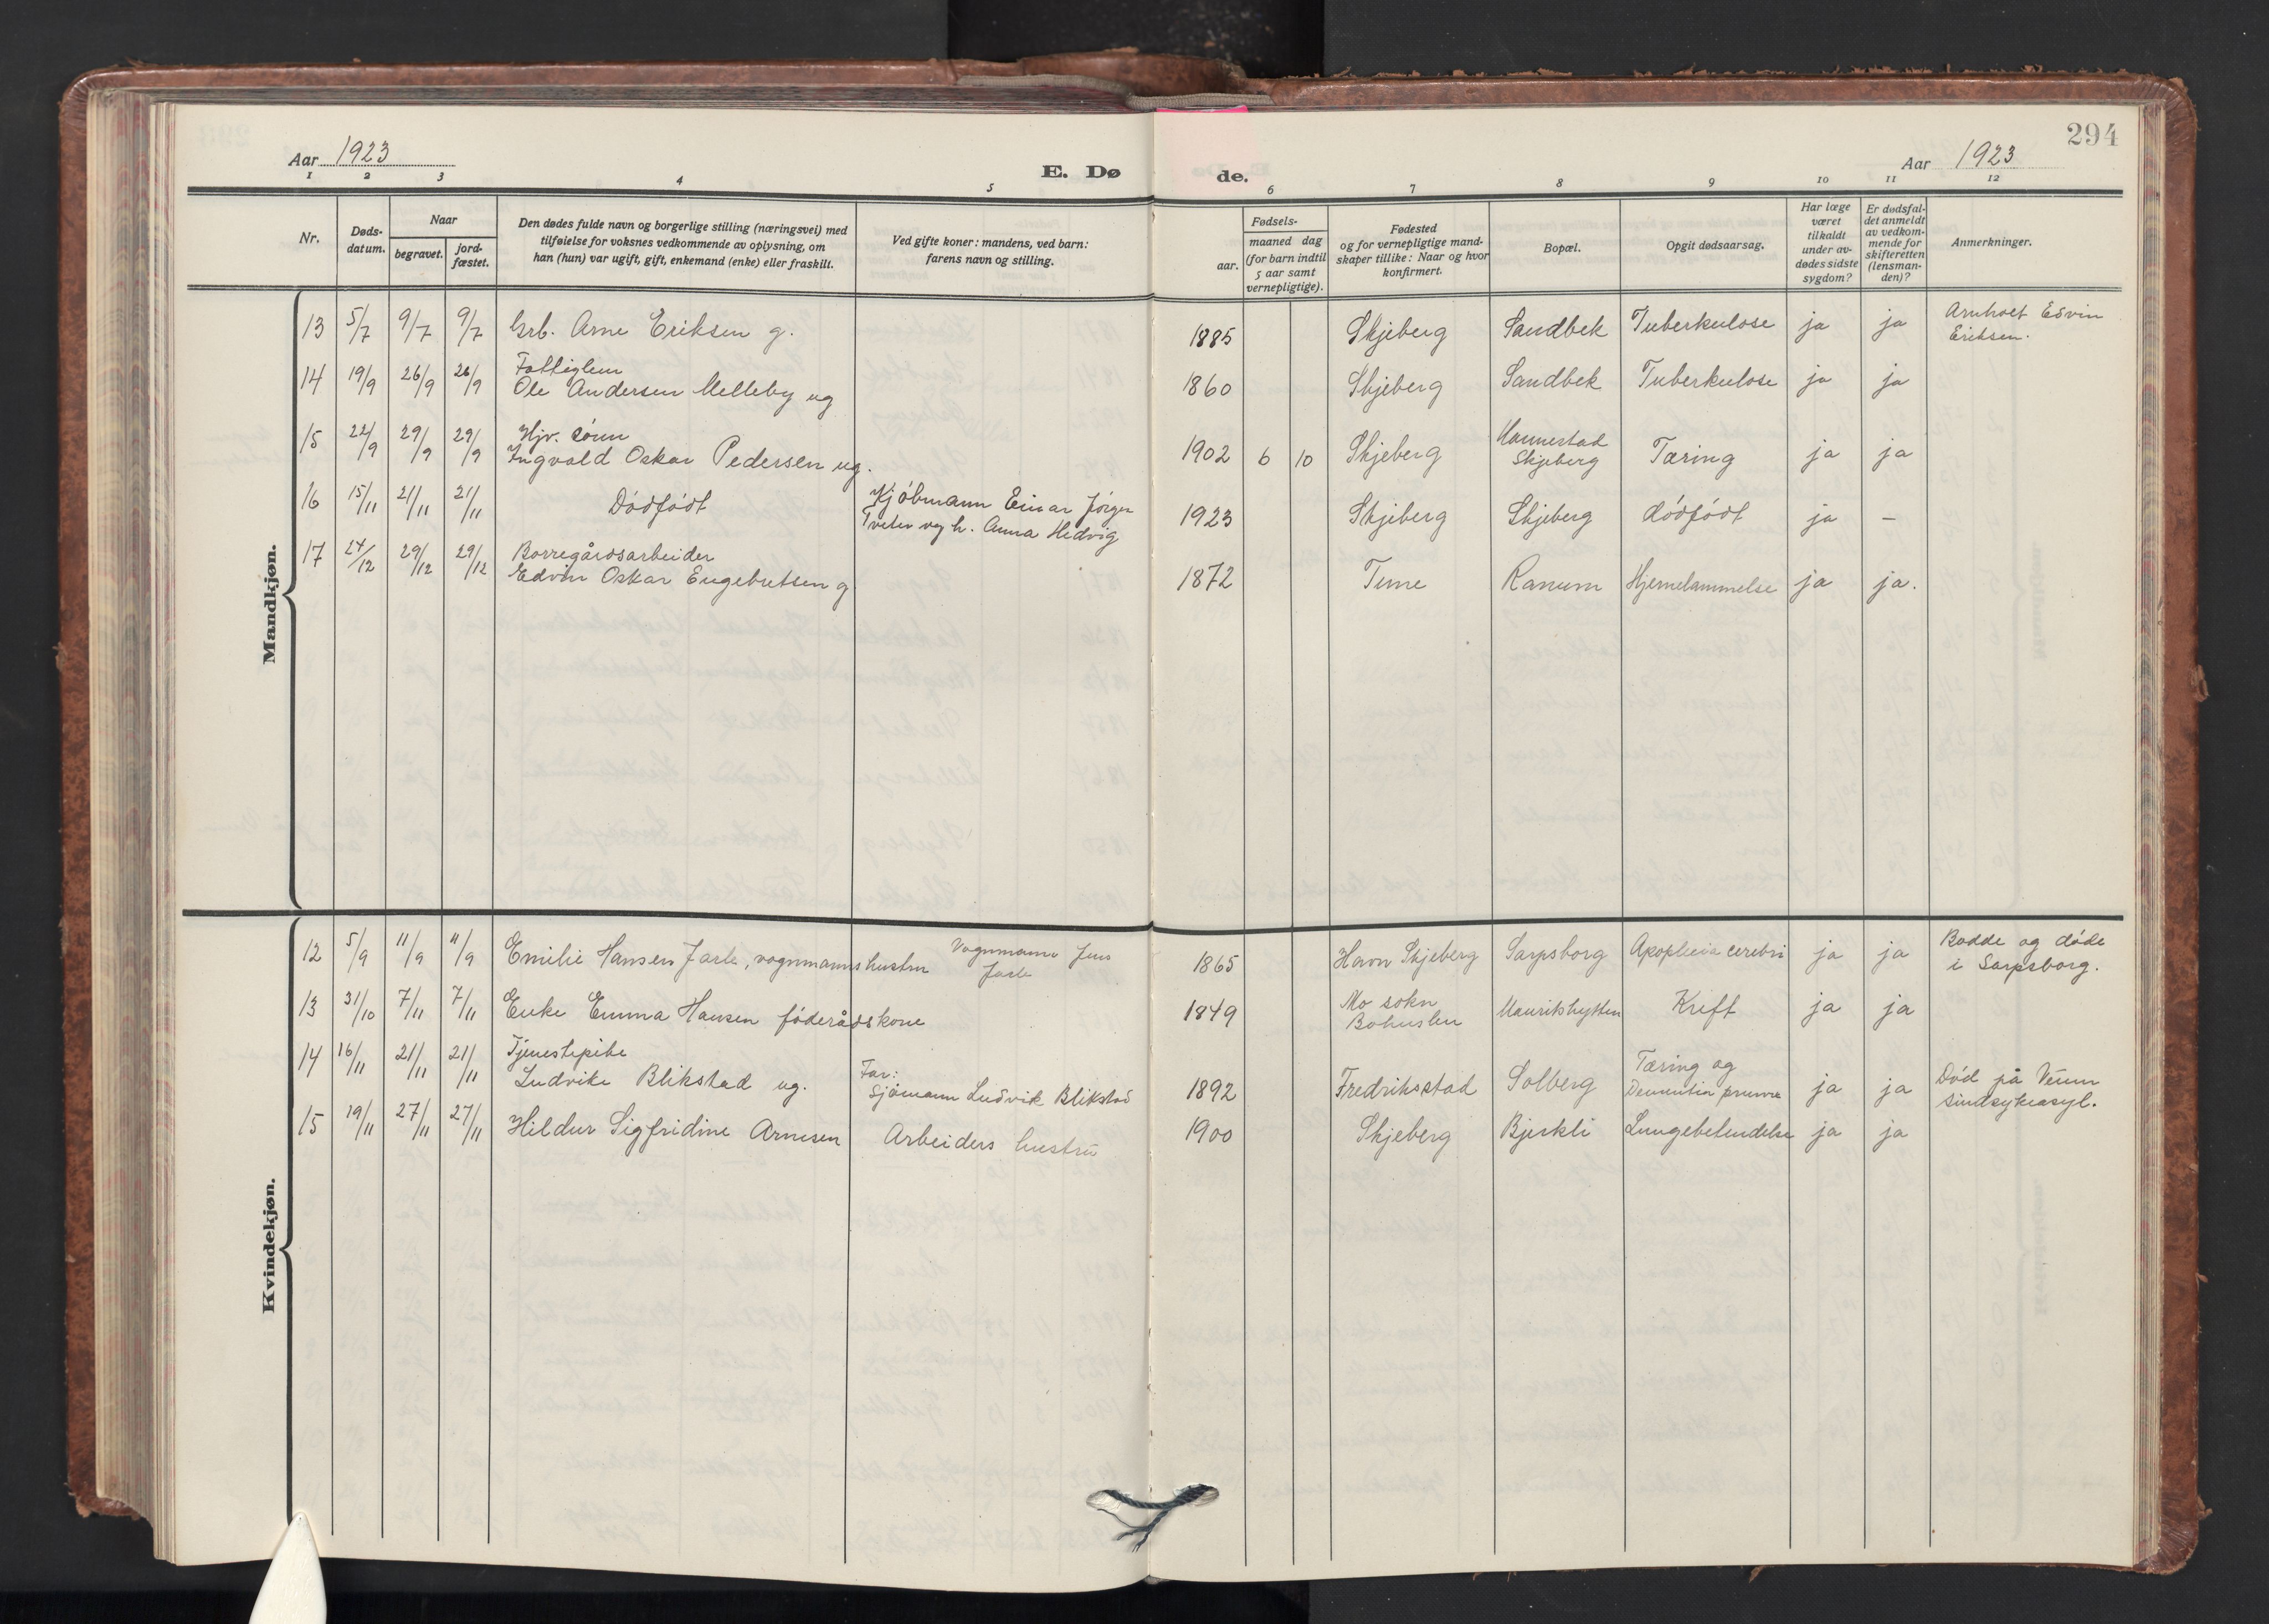 294
Aar 1923
E. Dø
de.
Aar 1923
1 2 3 4 5 6 7 8 9 10 11 12
Nr.
Døds-
datum.
Naar
begravet.
jord-
fæstet.
Den dødes fulde navn og borgerlige stilling (næringsvei) med
tilføielse for voksnes vedkommende av oplysning, om
han (hun) var ugift, gift, enkemand (enke) eller fraskilt.
Ved gifte koner: mandens, ved barn:
farens navn og stilling.
Fødsels-
aar.
maaned dag
(for barn indtil
5 aar samt
vernepligtige).
Fødested
og for vernepligtige mand-
skaper tillike: Naar og hvor
konfirmert.
Bopæl.
Opgit dødsaarsag.
Har læge
været
tilkaldt
under av-
dødes sidste
sygdom?
Er dødsfal-
det anmeldt
av vedkom-
mende for
skifteretten
(lensman-
den)?
Anmerkninger.
Mandkjøn.
13 5/7 9/7 9/7 Grb. Arne Eriksen g. 1885 Skjeberg Sandbek Tuberkulose ja ja Arnholt Edvin
Eriksen.
14 19/9 26/9 26/9 Fattiglem
Ole Andersen Melleby ug 1860 Skjeberg Sandbek Tuberkulose ja ja
15 22/9 29/9 29/9 Hjv. sønn
Ingvald Oskar Pedersen ug. 1902 6 10 Skjeberg Hannestad
Skjeberg Tæring ja ja
16 15/11 21/11 21/11 Dødfødt Kjøbmann Einar Jørgen
Tveter og h. Anna Hedvig 1923 Skjeberg Skjeberg dødfødt ja –
17 24/12 29/12 29/12 Borregårdsarbeider
Edvin Oskar Engebretsen g. 1872 Tune Ranum Hjernelammelse ja ja.
Kvindekjøn.
12 5/9 11/9 11/9 Emilie Hansen Jarle, vognmanns hustru Vognmann Jens
Jarle 1865 Havn Skjeberg Sarpsborg Apoplecia cerebri ja ja Bodde og døde
i Sarpsborg.
13 31/10 7/11 7/11 Enke Emma Hansen føderådskone 1849 Mo sokn
Bohuslen Mauritshytten Kreft ja ja
14 16/11 21/11 21/11 Tjenestepike
Ludvike Blikstad ug. Far:
Sjømann Ludvik Blikstad 1892 Fredriksstad Solberg Tæring og
Dementia ja ja Død på Veum
sindsykeasyl.
15 19/11 27/11 27/11 Hildur Sigfridine Arnesen Arbeiders hustru 1900 Skjeberg Bjerkli Lungebetendelse ja ja